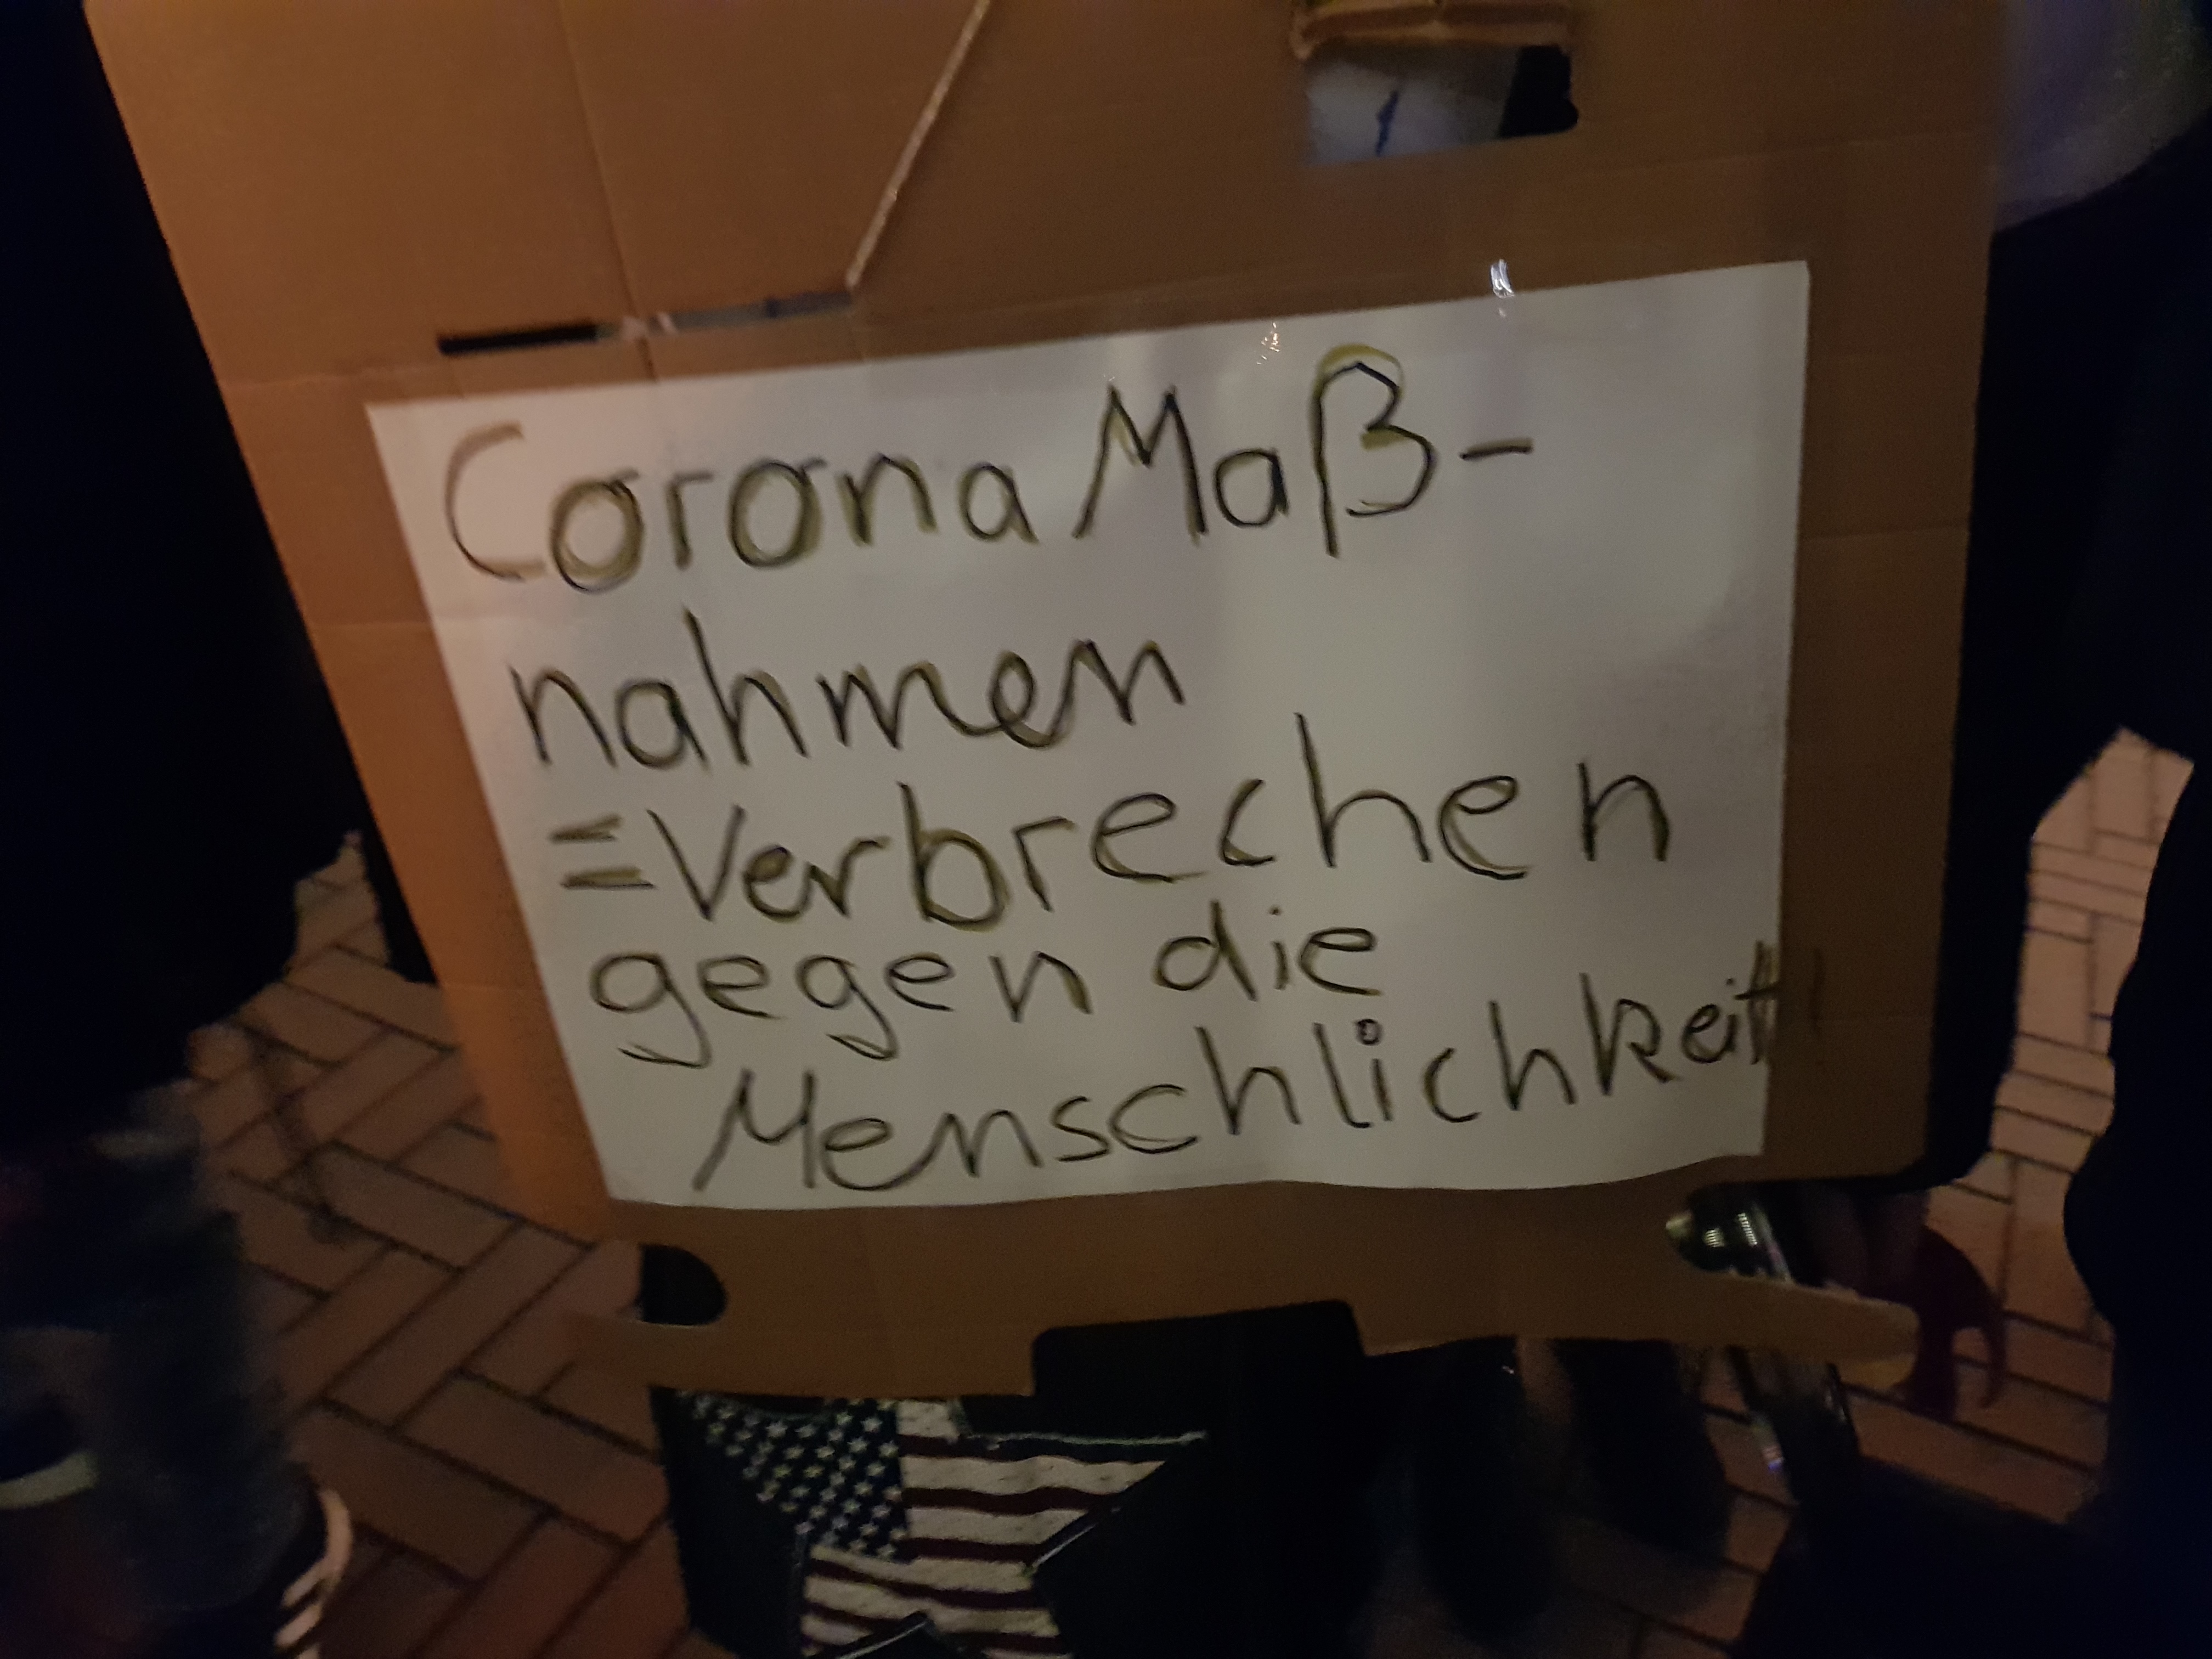 Corona Maß-
nahmen
=Verbrechen
gegen die
Menschlichkeit!